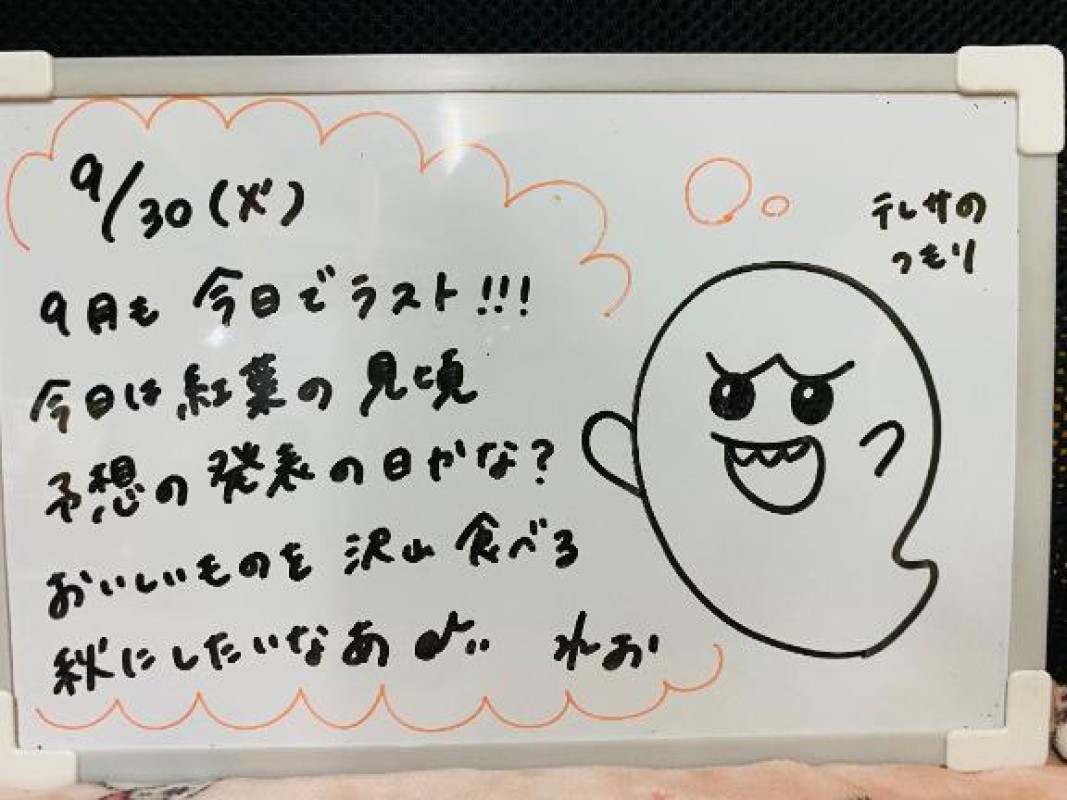 9/30(火)
9月も 今日でラスト!!!
今日は紅葉の見頃
予想の発表の日かな?
おいしいものを 沢山 食べる
秋にしたいなあ♪.. れおい
テレサの
つもり